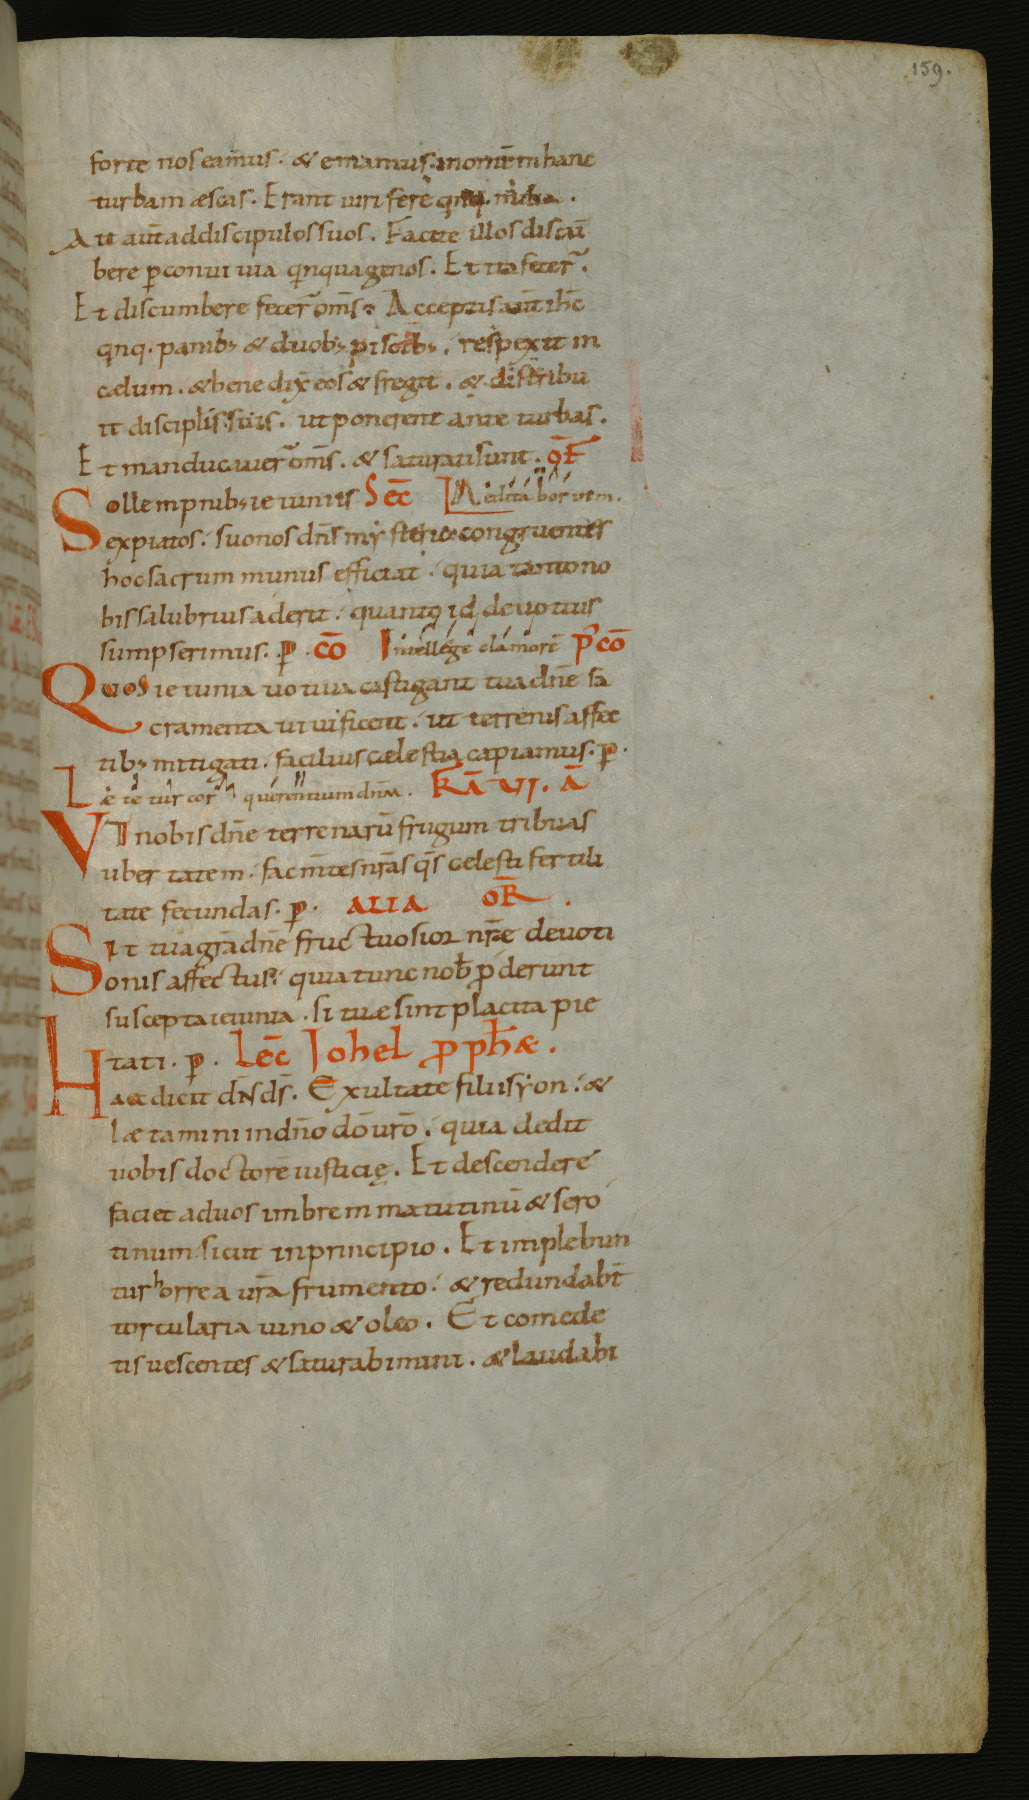 159.
forte nos eamus. & emamus. in omnē hanc
turbam æscas. Erant uiri fere qnq. milia.
Ait aūt ad discipulos suos. Facite illos discū
bere p conuiuia qnquagenos. Et ita fecer̄.
Et discumbere fecer̄ om̄s. Acceptis aūt ih̄c
qnq. panib; & duob; piscib;. respexit in
cælum. & benedix̄ eos & fregit. & distribu
it disciplis suis. ut ponerent ante turbas.
Et manducauer̄ om̄s. & saturati sunt. OF̄
Sollempnib; ieiuniis SEC̄ Meditabor item.
expiatos. suo nos dn̄s mysterio congruentes
hoc sacrum munus efficiat. quia tanto no
bis salubrius aderit. quanto id deuotius
sumpserimus. p. CŌ Intellege clamorē P̄ CŌ
Quos ieiunia uotiua castigant tua dn̄e sa
cramenta uiuificent. ut terrenis affec
tib; mitigati. facilius cælestia capiamus. p.
Lætetur cor querentium dnm. FR̄ VI. Ā
VT nobis dn̄e terrenarū frugum tribuas
ubertatem. fac m̄tes nr̄as q̄s celesti fertili
tate fecundas. p. ALIA OR̄.
Sit tua gr̄a dn̄e fructuosior nr̄æ deuoti
onis affectus. quia tunc nob̄ pderunt
suscepta ieiunia. si tuæ sint placita pie
tati. p. Lec̄ Johel pph̄æ.
Hæc dicit dn̄s ds̄. Exultate filii syon. &
lætamini in dn̄o dō urō. quia dedit
uobis doctorē iusticię. Et descendere
faciet ad uos imbrem matutinū & sero
tinum sicut in principio. Et implebun
tur horrea ur̄a frumento. & redundabt̄
torcularia uino & oleo. Et comede
tis uescentes & saturabimini. & laudabi